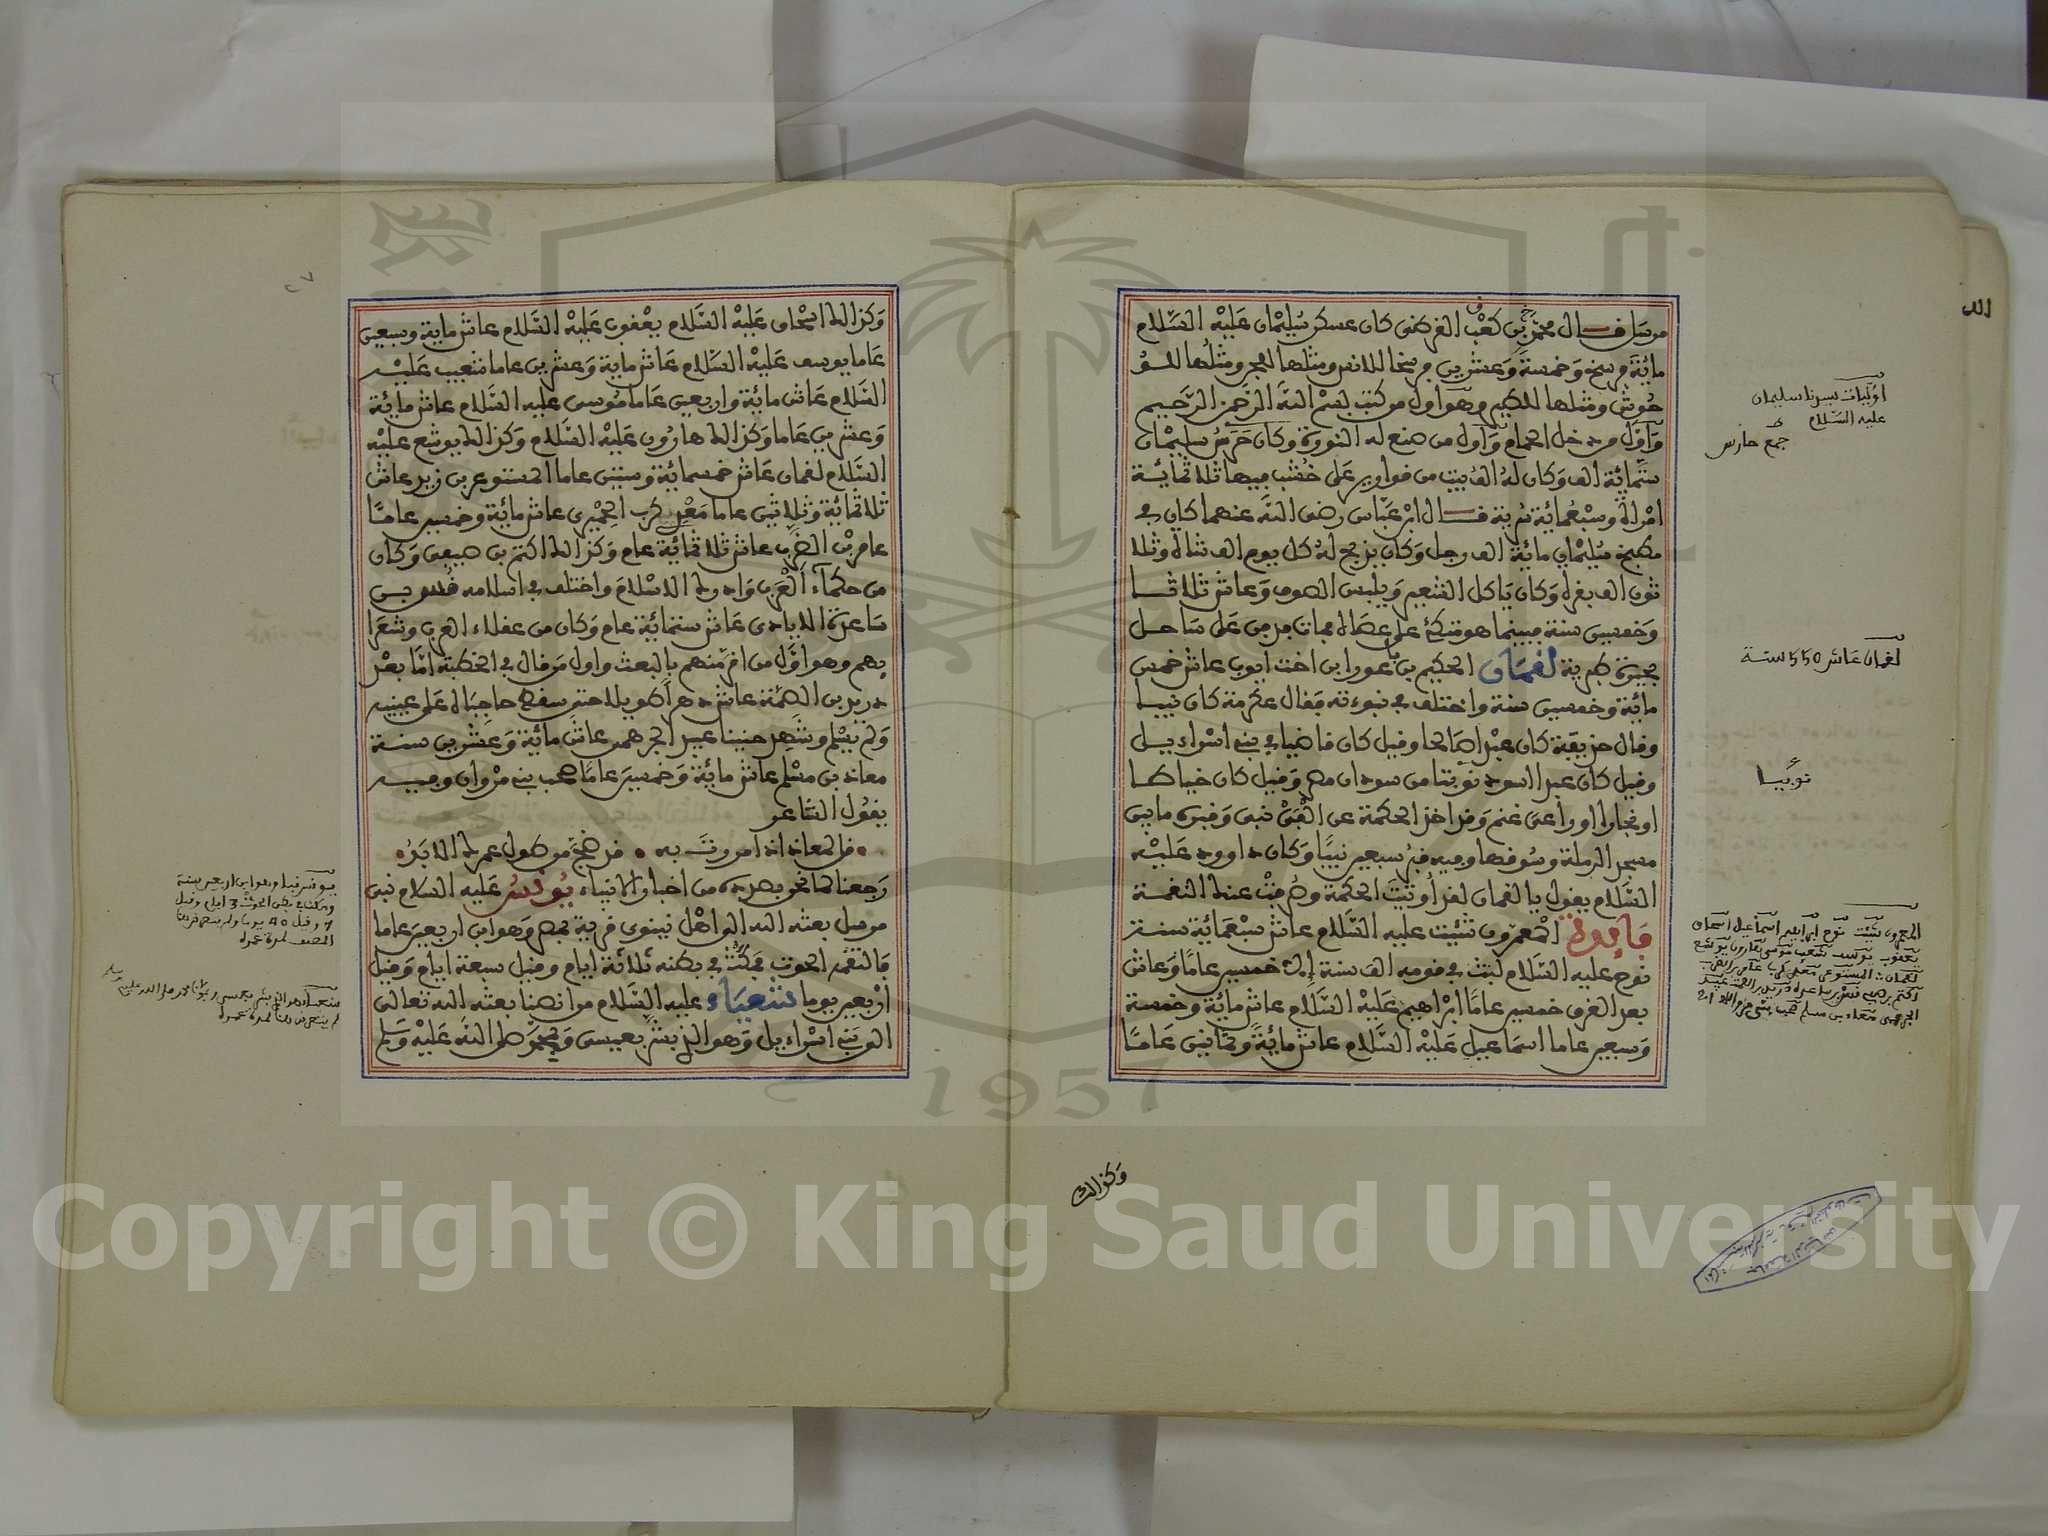 مرسل فال محمد بن كعب الفرظي كان عسكر سليمان عليه السلام
مائة فرسخ وخمسة وعشرين فرسخا للانس ومثلها للجن ومثلها للو
حوش ومثلها للطير وهو اول من كتب بسم الله الرحمن الرحيم
واول من دخل الحمام واول من صنع له النورة وكان حرس سليمان
ستمائة الف وكان له الف بيت من فوارير على خشب فيها ثلاثمائة
امراة وسبعمائة سرية فال ابن عباس رضى الله عنهما كان في
مطبخ سليمان مائة الف رجل وكان يذبح له كل يوم الف شاة وثلا
ثون الف بفرة وكان ياكل الشعير ويلبس الصوف وعاش ثلاثا
وخمسين سنة فبينما هو متكئ على عصاه فمات فدفن على ساحل
بحيرة طبرية لفمان الحكيم بن باعورا بن اخت ايوب عاش خمس
مائة وخمسين سنة واختلف في نبوءته ففال عكرمة كان نبيا
وفال حذيفة كان عبدا صالحا وفيل كان فاضيا في بني اسراءيل
وفيل كان عبدا اسود نوبيا من سودان مصر وفيل كان خياطا
او نجارا او راعى غنم وفد اخذ الحكمة عن الف نبى وفبره ما بين
مسجد الرملة وسوفها وفيه فبر سبعين نبيا وكان داوود عليه
السلام يفول يا لفمان لفد اوتيت الحكمة وصرفت عنك النفمة
فايدة المعمرون شيت عليه السلام عاش سبعمائة سنة
نوح عليه السلام لبث في فومه الف سنة إلا خمسين عاما وعاش
بعد الغرق خمسين عاما ابراهيم عليه السلام عاش مائة وخمسة
وسبعين عاما اسماعيل عليه السلام عاش مائة وثمانين عاما
وكذالك
اوليات سيدنا سليمان
عليه السلام
جمع حارس
لفمان عاش 550 سنة
نوبيا
المعمرون شيت نوح ابراهيم اسماعيل اسحاق
يعفوب يوسف شعيب موسى هارون يوشع
وكذالك اسحاق عليه السلام يعفوب عليه السلام عاش مائة وسبعين
عاما يوسف عليه السلام عاش مائة وعشرين عاما شعيب عليه
السلام عاش مائة واربعين عاما موسى عليه السلام عاش مائة
وعشرين عاما وكذالك هارون عليه السلام وكذالك يوشع عليه
السلام لفمان عاش خمسمائة وستين عاما المستوعر بن زيد عاش
ثلاثمائة وثلاثين عاما معدى كرب الحميرى عاش مائة وخمسين عاما
عامر بن الضرب عاش ثلاثمائة عام وكذالك اكثم بن صيفى وكان
من حكماء العرب وادرك الاسلام واختلف في اسلامه فس بن
ساعدة الايادى عاش ستمائة عام وكان من عفلاء العرب وشعرا
يهم وهو اول من افر منهم بالبعث واول من فال في الخطبة اما بعد
دريد بن الصمة عاش دهرا طويلا حتى سفط حاجباه على عينيه
ولم يسلم وشهد حنينا عبيد الجرهمى عاش مائة وعشرين سنة
معاذ بن مسلم عاش مائة وخمسين عاما صحب بنى مروان وفيه
يفول الشاعر
فل لمعاذ اذا مررت به • فد ضج من طول عمرك الابد
رجعنا لما نحن بصدده من اخبار الانبياء يونس عليه السلام نبى
مرسل بعثه الله الى اهل نينوى فرية بمصر وهو ابن اربعين عاما
فالتفمه الحوت فمكث في بطنه ثلاثة ايام وفيل سبعة ايام وفيل
اربعين يوما شعياء عليه السلام من انبياء بعثه الله تعالى
الى بنى اسراءيل وهو الذى بشر بعيسى ومحمد صلى الله عليه وسلم